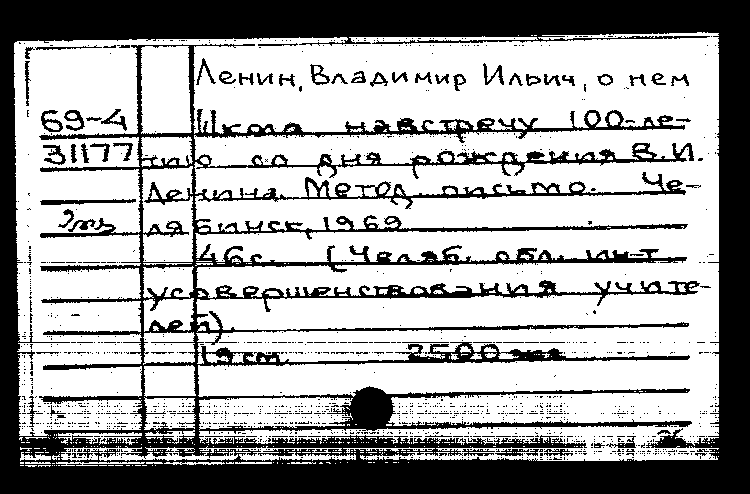 Ленин, Владимир Ильич, о нем
69-4 Школа навстречу 100-ле-
31177 тию со дня рождения В.И.
Ленина. Метод. письмо. Че-
лябинск, 1969
46с. (Челяб. обл. ин-т
усовершенствования учите-
лей).
19 см. 2500 экз